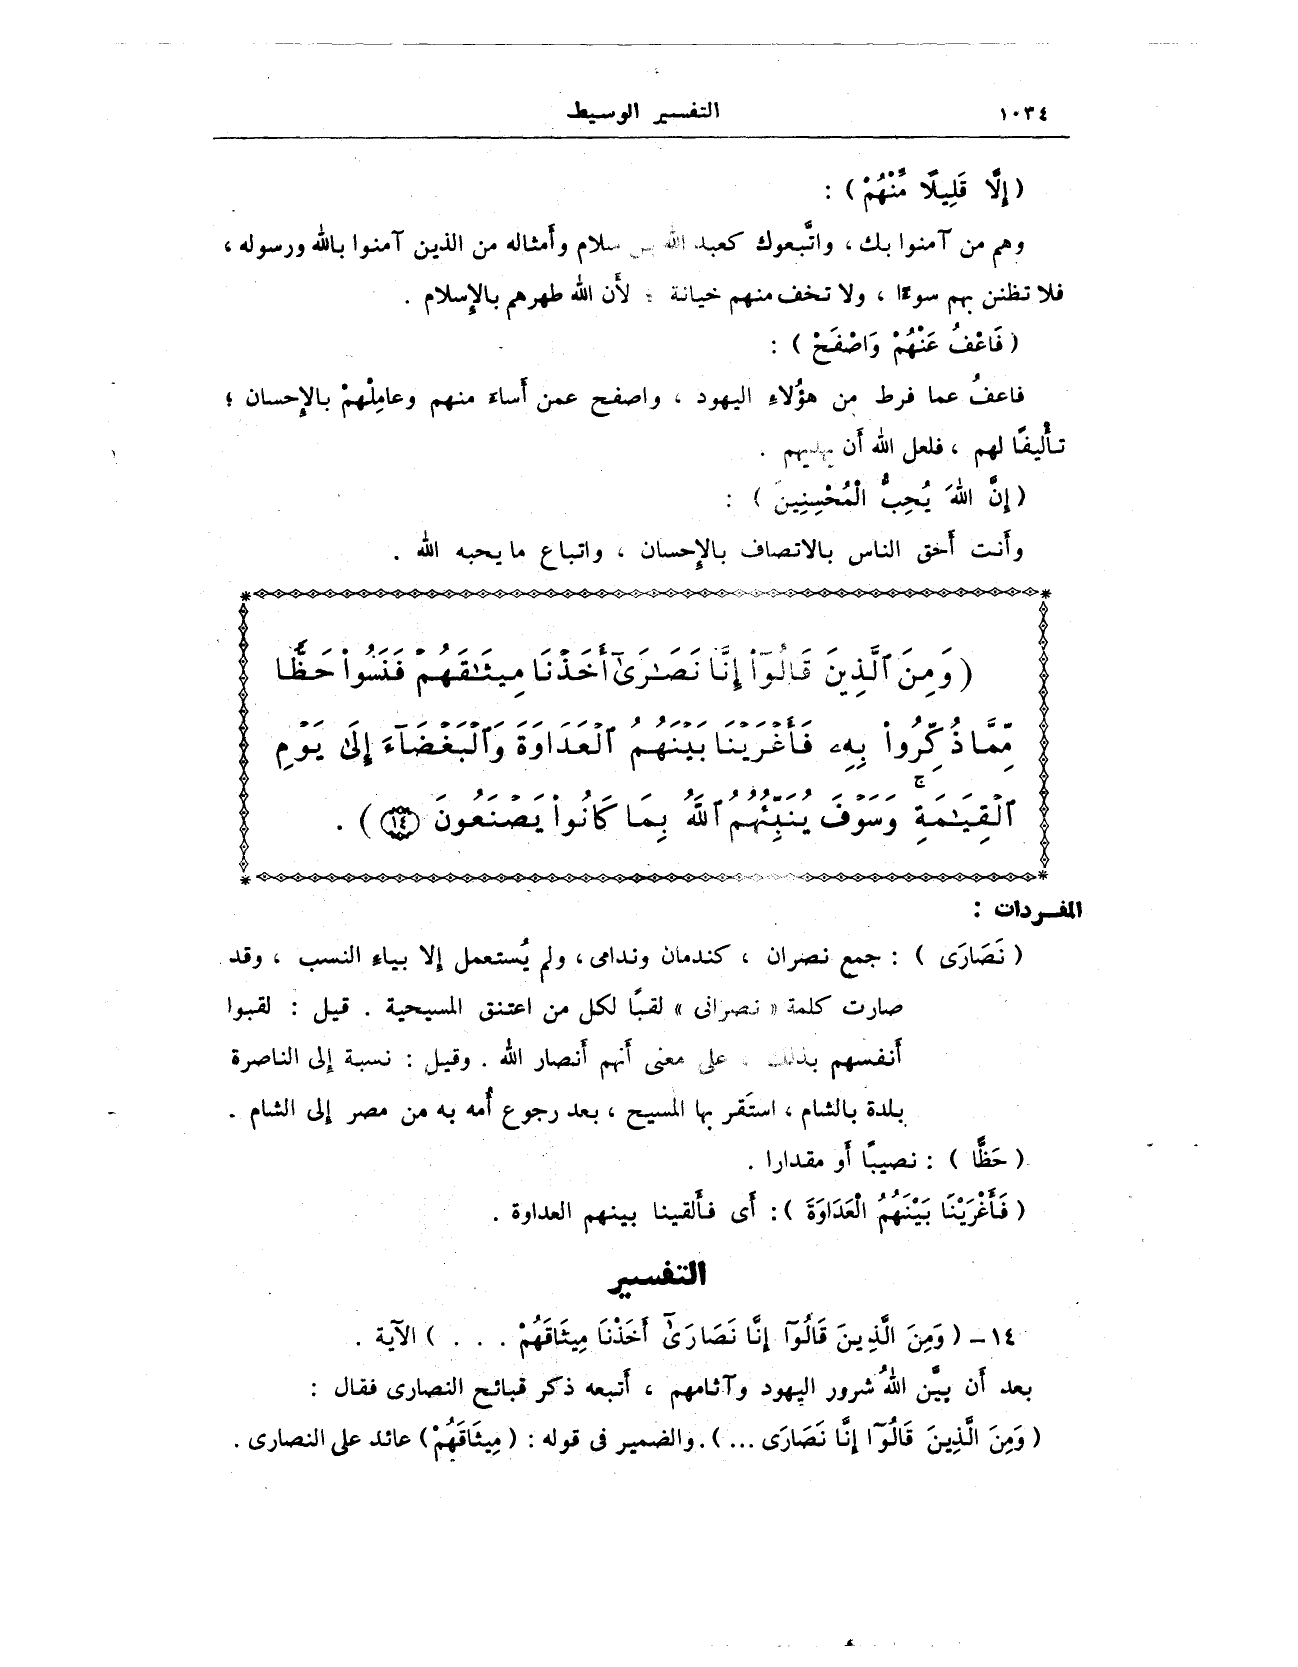 ١٠٣٤ التفسير الوسيط
( إِلَّا قَلِيلًا مِّنْهُمْ ) :
وهم من آمنوا بك ، واتَّبعوك كعبد الله بن سلام وأمثاله من الذين آمنوا بالله ورسوله ،
فلا تظنن بهم سوءًا ، ولا تخف منهم خيانة ؛ لأن الله طهرهم بالإسلام .
( فَاعْفُ عَنْهُمْ وَاصْفَحْ ) :
فاعفُ عما فرط من هؤُلاءِ اليهود ، واصفح عمن أساءَ منهم وعامِلْهمْ بالإحسان ؛
تأْليفًا لهم ، فلعل الله أن يهديهم .
( إِنَّ اللهَ يُحِبُّ الْمُحْسِنِينَ ) :
وأنت أحق الناس بالاتصاف بالإحسان ، واتباع ما يحبه الله .
( وَمِنَ ٱلَّذِينَ قَالُوٓا۟ إِنَّا نَصَـٰرَىٰٓ أَخَذْنَا مِيثَـٰقَهُمْ فَنَسُوا۟ حَظًّا
مِّمَّا ذُكِّرُوا۟ بِهِۦ فَأَغْرَيْنَا بَيْنَهُمُ ٱلْعَدَاوَةَ وَٱلْبَغْضَآءَ إِلَىٰ يَوْمِ
ٱلْقِيَـٰمَةِ ۚ وَسَوْفَ يُنَبِّئُهُمُ ٱللَّهُ بِمَا كَانُوا۟ يَصْنَعُونَ ١٤ ) .
المفردات :
( نَصَارَى ) : جمع نصران ، كندمان وندامى ، ولم يُستعمل إلا بياءِ النسب ، وقد
صارت كلمة « نصرانى » لقبًا لكل من اعتنق المسيحية . قيل : لقبوا
أنفسهم بذلك ، على معنى أنهم أنصار الله . وقيل : نسبة إلى الناصرة
بلدة بالشام ، استَقر بها المسيح ، بعد رجوع أُمه به من مصر إلى الشام .
( حَظًّا ) : نصيبًا أو مقدارا .
( فَأَغْرَيْنَا بَيْنَهُمُ الْعَدَاوَةَ ) : أى فألقينا بينهم العداوة .
التفسير
١٤ - ( وَمِنَ الَّذِينَ قَالُوٓا إِنَّا نَصَارَىٰٓ أَخَذْنَا مِيثَاقَهُمْ . . . ) الآية .
بعد أن بيَّن اللهُ شرور اليهود وآثامهم ، أتبعه ذكر قبائح النصارى فقال :
( وَمِنَ الَّذِينَ قَالُوٓا إِنَّا نَصَارَى ... ) . والضمير فى قوله : ( مِيثَاقَهُمْ ) عائد على النصارى .